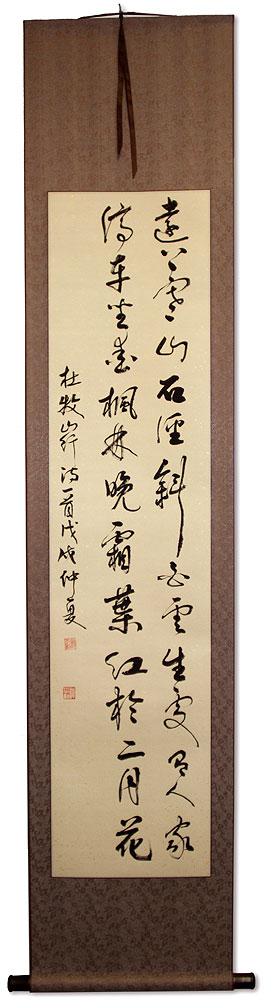 遠上寒山石徑斜白雲生處有人家
停車坐愛楓林晚霜葉紅於二月花
杜牧山行詩一首戊戌仲夏